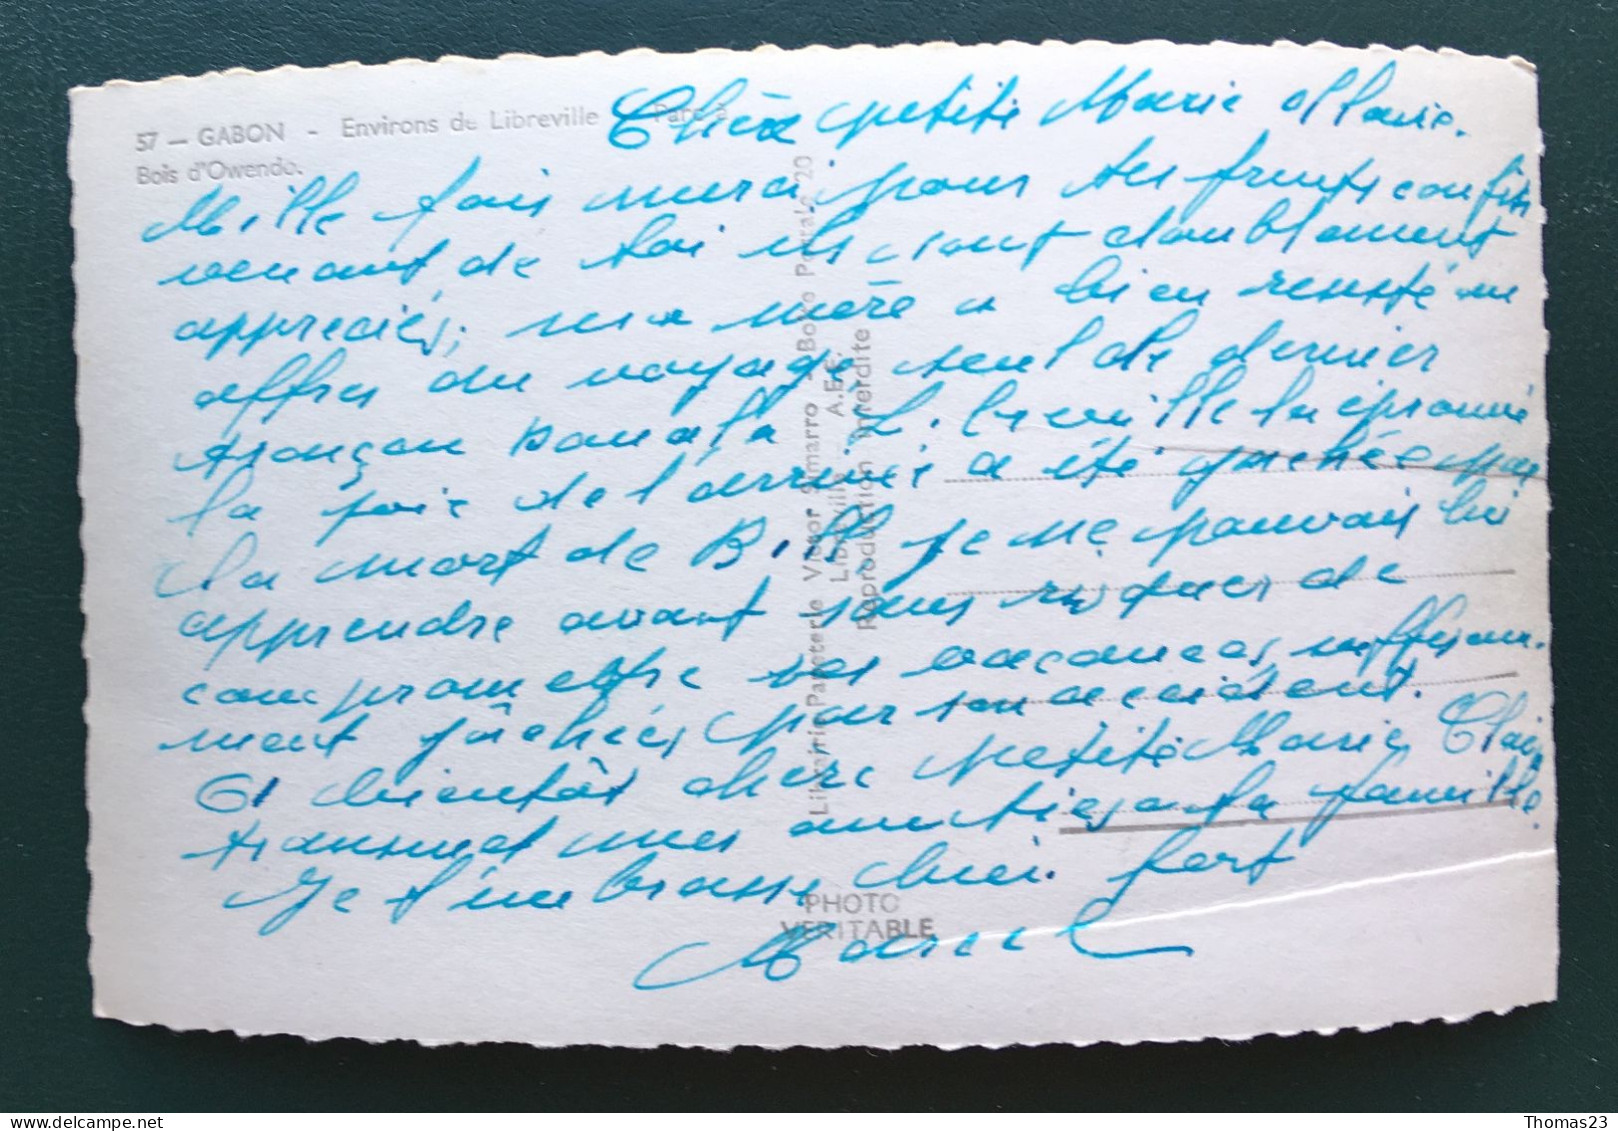 57 — GABON - Environs de Libreville - Parc à
Bois d'Owendo.
Chère petite Marie Claire.
Mille fois merci pour tes fruits confits
venant de toi ils sont doublement
appreciés; ma mère a bien
du voyage, seul le dernier
tronçon Douala L.breville l'a éprouvé
la joie de l'arrivée a été gachée par
la mort de Bill je ne pouvais lui
apprendre avant sans risques de
compromettre ses vacances suffisam.
ment gâchées par son accident.
A bientôt chère petite Marie Claire
transmet mes amities a ta famille.
Je t'embrasse bien fort
Marcel
Librairie-Papeterie Victor Simarro - Boîte Postale 20
Libreville A.E.F.
Reproduction interdite
PHOTO
VERITABLE
Thomas23